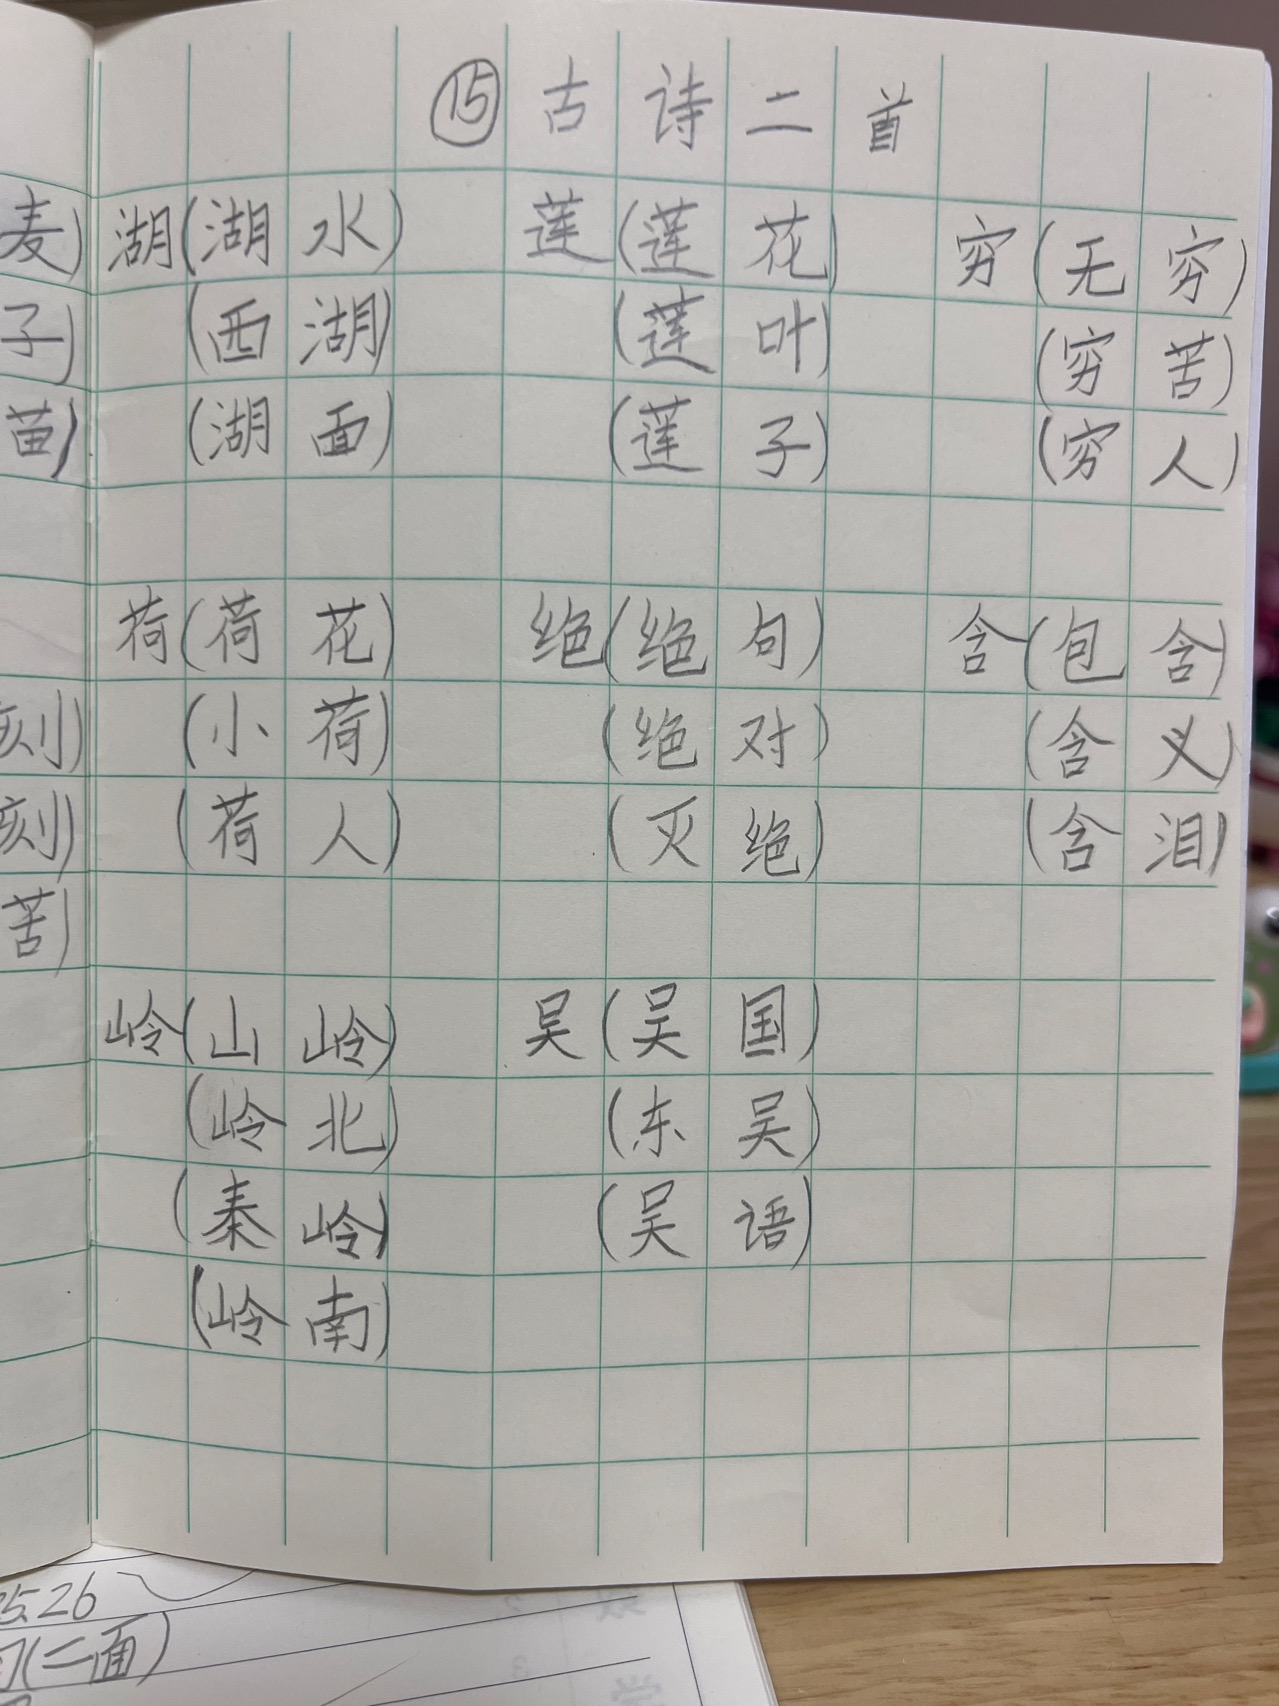 ⑮古诗二首
麦) 湖(湖水) 莲(莲花) 穷(无穷)
子) (西湖) (莲叶) (穷苦)
苗) (湖面) (莲子) (穷人)
荷(荷花) 绝(绝句) 含(包含)
刻) (小荷) (绝对) (含义)
刻) (荷人) (灭绝) (含泪)
苦)
岭(山岭) 吴(吴国)
(岭北) (东吴)
(秦岭) (吴语)
(岭南)
5.26
(二面)